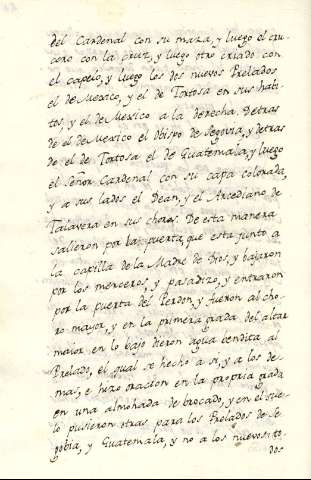 del Cardenal con su maza, y luego el cru-
cero con la cruz, y luego otro criado con
el capelo, y luego los dos nuevos Prelados
el de Mexico, y el de Tortosa en sus habi-
tos, y el de Mexico a la derecha. Detras
de el de Mexico el Obispo de Segovia, y detras
de el de Tortosa el de Guatemala, y luego
el Señor Cardenal con su capa colorada,
y a sus lados el Dean, y el Arcediano de
Talavera en sus choros. De esta manera
salieron por la puerta, que esta junto a
la capilla de la Madre de Dios, y bajaron
por los merceros, y pasadizo, y entraron
por la puerta del Perdon, y fueron al cho-
ro maior, y en la primera grada del altar
maior en lo bajo dieron agua bendita al
Prelado, el qual se hecho a si, y a los de-
mas, e hizo oracion en la propria grada
en una almohada de brocado, y en el sue-
lo pusieron otras para los Prelados de Se-
gobia, y Guatemala, y no a los nuevos: to-
dos